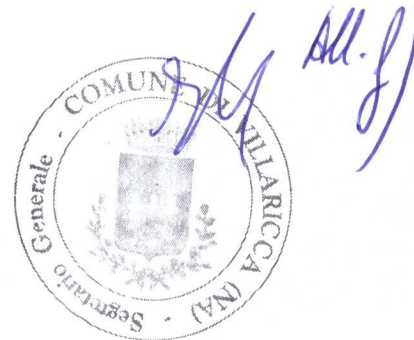 All. f)
COMUNE DI VILLARICCA (NA) -
Segretario Generale -